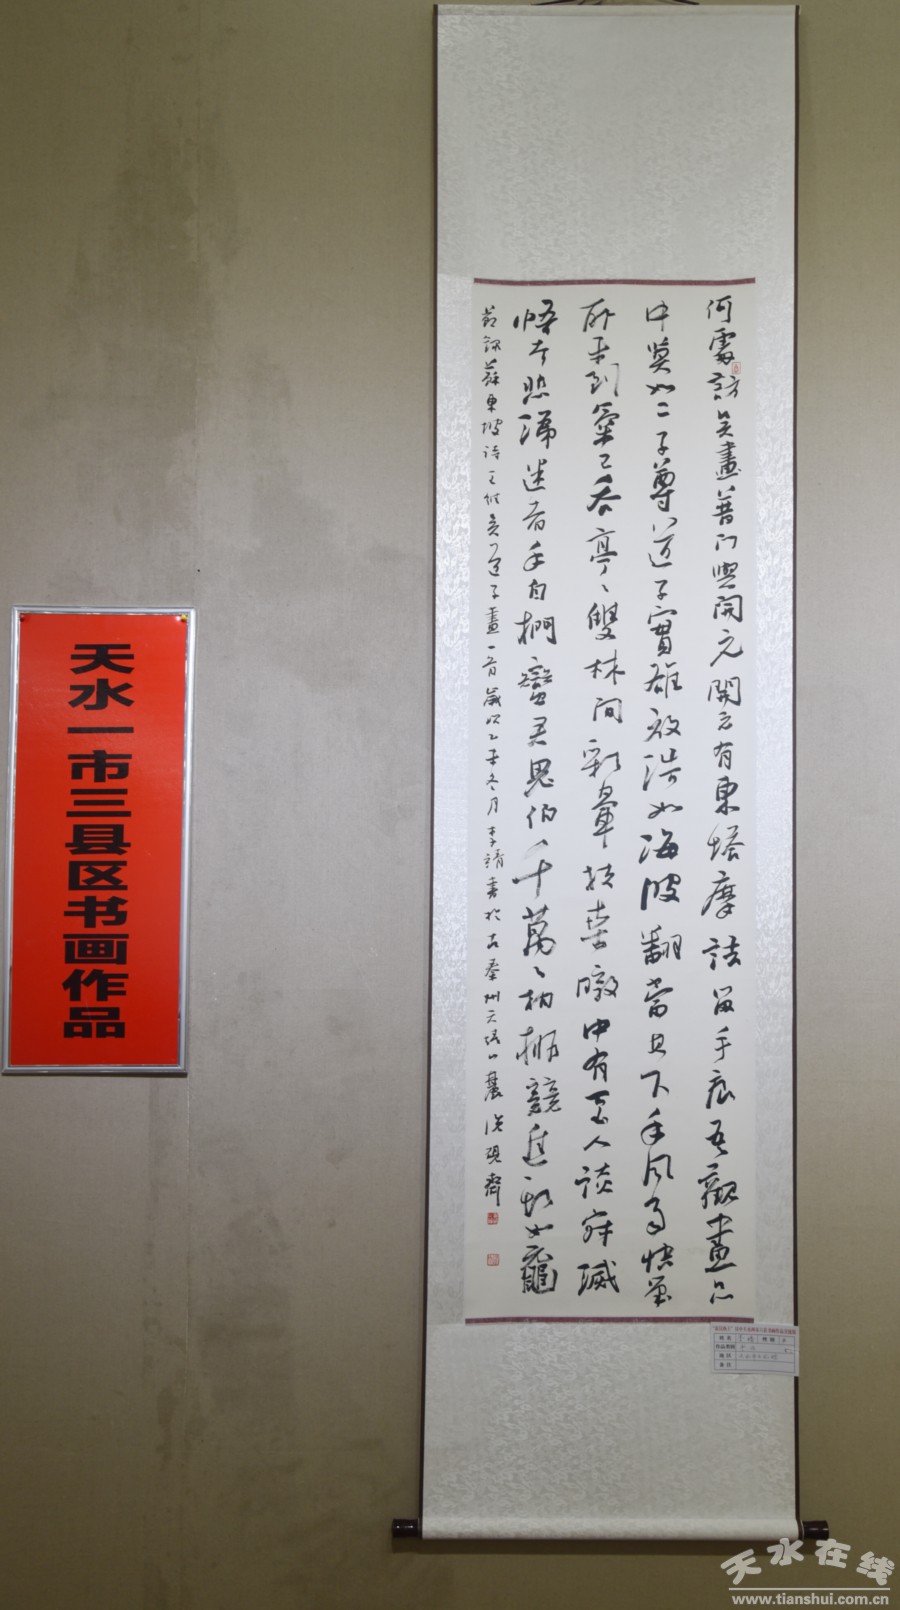 天水一市三县区书画作品
何處訪吳畫普门與開元開元有東塔摩詰留手痕吾觀畫品
中莫如二子尊道子實雄放浩如海波翻當其下手風雨快筆
所未到氣已吞亭〻雙林間彩暈扶桑暾中有至人談寂滅
悟者悲涕迷者手自捫蠻君鬼伯千萬〻相排競進頭如黿
節錄蘇東坡詩王維吳道子畫一首歲次乙未冬月李靖書於古秦州天靖山麓 硯齋
天水在线
www.tianshui.com.cn